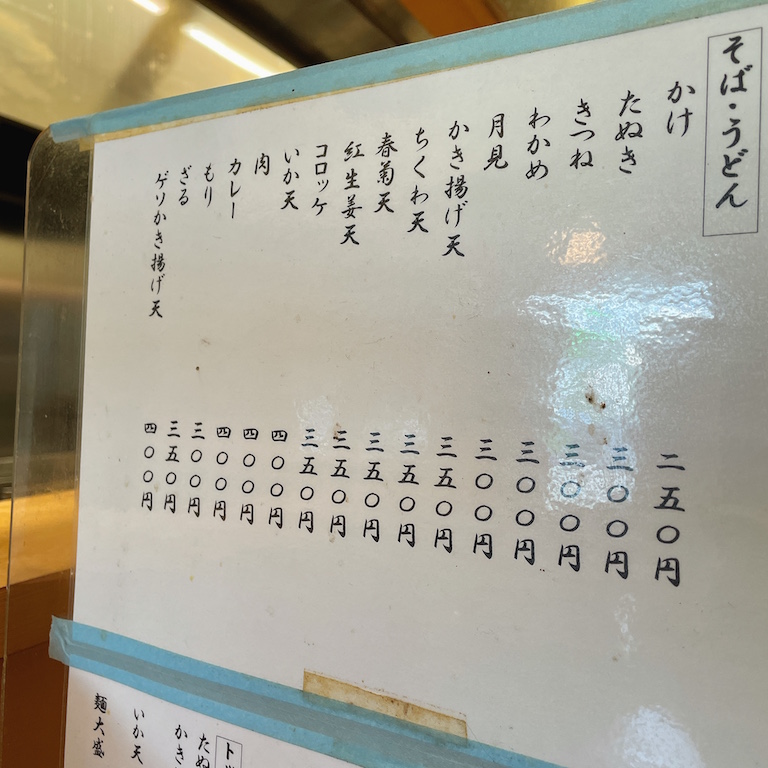 そば・うどん
かけ 二五〇円
たぬき 三〇〇円
きつね 三〇〇円
わかめ 三〇〇円
月見 三〇〇円
かき揚げ天 三五〇円
ちくわ天 三五〇円
春菊天 三五〇円
紅生姜天 三五〇円
コロッケ 三五〇円
いか天 四〇〇円
肉 四〇〇円
カレー 四〇〇円
もり 三〇〇円
ざる 三五〇円
ゲソかき揚げ天 四〇〇円
たぬ
かき
いか天
麺大盛